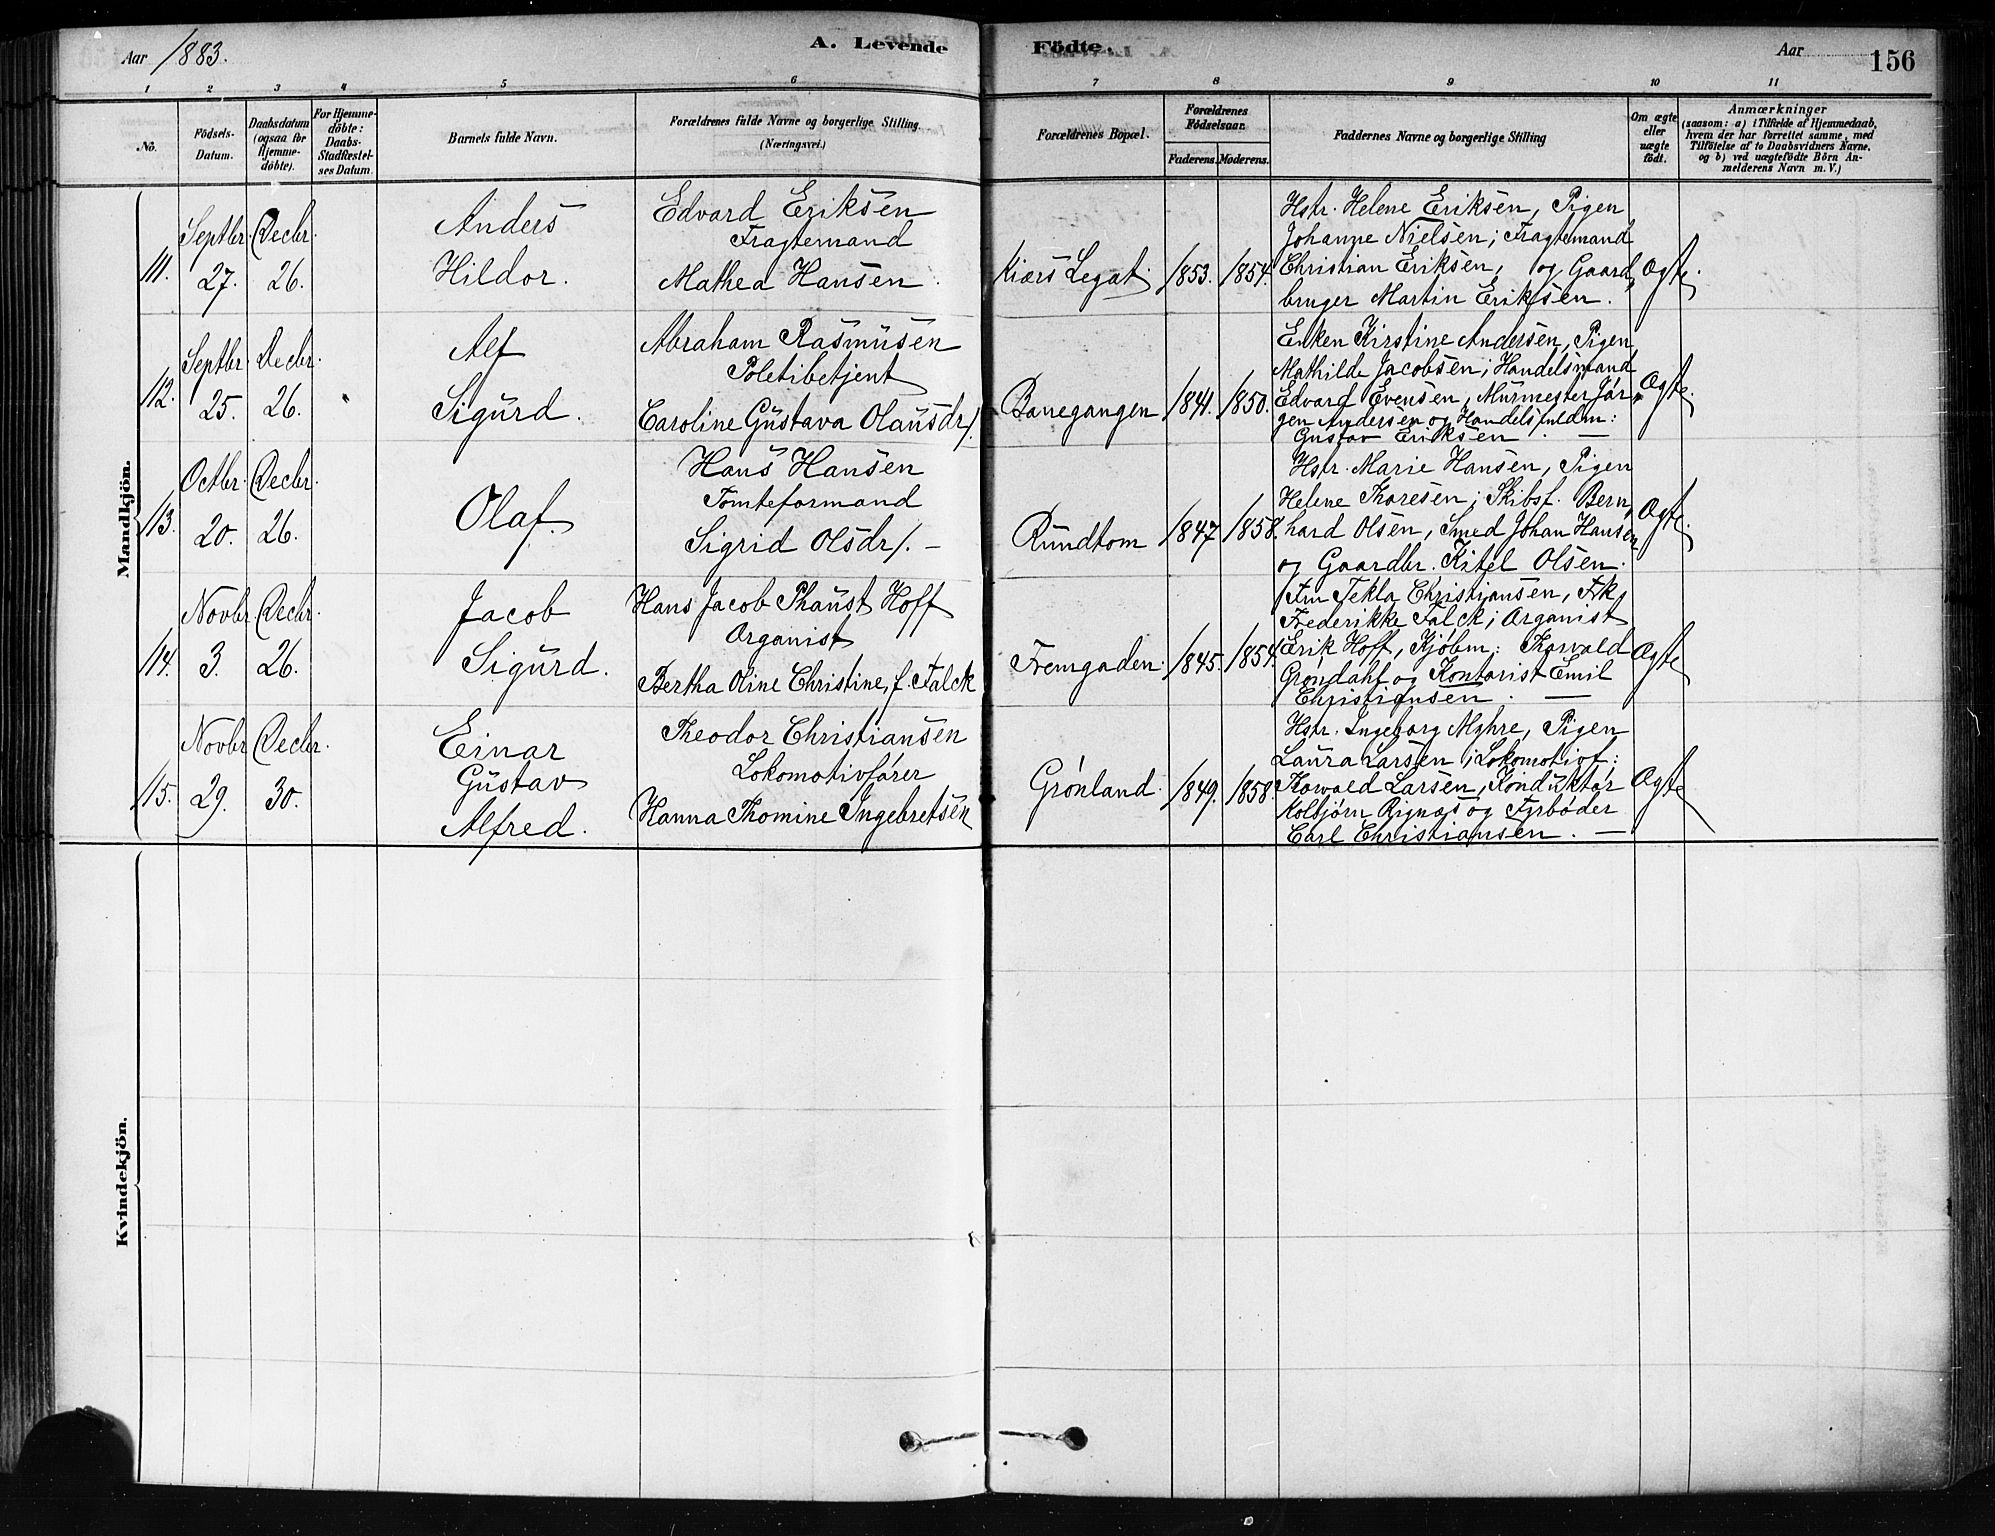 Aar 1883.
A. Levende
Födte.
Aar
156
1 2 3 4 5 6 7 8 9 10 11
No.
Födsels-
Datum.
Daabsdatum
(ogsaa for
Hjemme-
döbte).
For Hjemme-
döbte:
Daabs-
Stadfæstel-
ses Datum.
Barnets fulde Navn.
Forældrenes fulde Navne og borgerlige Stilling
(Næringsvei.)
Forældrenes Bopæl.
Forældrenes
Födselsaar.
Faderens. Moderens.
Faddernes Navne og borgerlige Stilling
Om ægte
eller
uægte
født.
Anmærkninger
(saasom: a) i Tilfælde af Hjemmedaab,
hvem der har forrettet samme, med
Tilföielse af to Daabsvidners Navne,
og b) ved uægtefödte Börn An-
melderens Navn m. V.)
Mandkjön.
111.
Septbr.
27.
Decbr.
26.
Anders
Hildor.
Edvard Eriksen
Fragtemand
Mathea Hansen.
Kiærs Legat.
1853.
1854.
Hstr. Helene Eriksen, Pigen
Johanne Nielsen; Fragtemand
Christian Eriksen, og Gaard,
bruger Martin Eriksen.
Ægte.
112.
Septbr.
25.
Decbr.
26.
Alf
Sigurd.
Abraham Rasmusen
Poletibetjent
Caroline Gustava Olausdr/.
Banegangen
1841.
1850.
Enken Kirstine Andersen, Pigen
Mathilde Jacobsen; Handelsmand
Edvard Evensen, Murmester Jør-
gen Andersen og Handelsfuldm:
Gustav Eriksen. —
Ægte.
113.
Octbr.
20.
Decbr.
26.
Olaf.
Hans Hansen
Tomteformand
Sigrid Olsdr/. —
Rundtom
1847
1858.
Hstr. Marie Hansen, Pigen
Helene Thoresen; Skibsf. Bern,
hard Olsen, Smed Johan Hansen
og Gaardbr. Kitel Olsen.
Ægte.
114.
Novbr
3.
Decbr.
26.
Jacob
Sigurd.
Hans Jacob Phaust Hoff
Organist
Bertha Oline Christine, f. Falck
Fremgaden.
1845.
1854.
Fru Tekla Christiansen, Frk.
Frederikke Falck; Organist
Erik Hoff, Kjøbm: Thorvald
Grøndahl og Kontorist Emil
Christiansen. —
Ægte
115.
Novbr
29.
Decbr.
30.
Einar
Gustav
Alfred.
Theodor Christiansen
Lokomotivfører
Hanna Thomine Ingebretsen
Grønland.
1849.
1858.
Hstr. Ingeborg Myhre, Pigen
Laura Larsen; Lokomotivf:
Thorvald Larsen, Konduktør
Kolbjørn Rignæs og Fyrbøder
Carl Christiansen. —
Ægte
Kvindekjön.